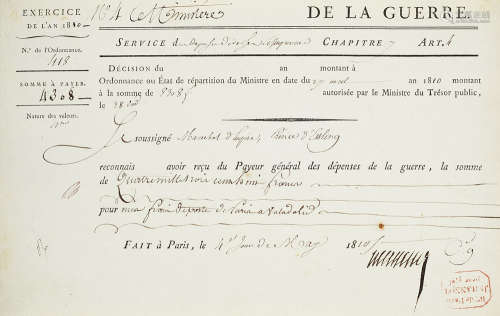 EXERCICE
DE L'AN 1810
N.° de l'Ordonnance.
418
SOMME A PAYER.
4308
Nature des valeurs.
N.° 4 Ministère DE LA GUERRE
SERVICE CHAPITRE 7 ART. 4
DÉCISION du an montant à
Ordonnance ou État de répartition du Ministre en date du an 1810 montant
à la somme de autorisée par le Ministre du Trésor public,
le 28
Je soussigné Marechal d'Empire, Prince d'Esling
reconnais avoir reçu du Payeur général des dépenses de la guerre, la somme
de Quatre mille trois cent huit francs
pour mes frais de poste de Paris a Valadolid
FAIT à Paris, le 4e Jour de May 1810